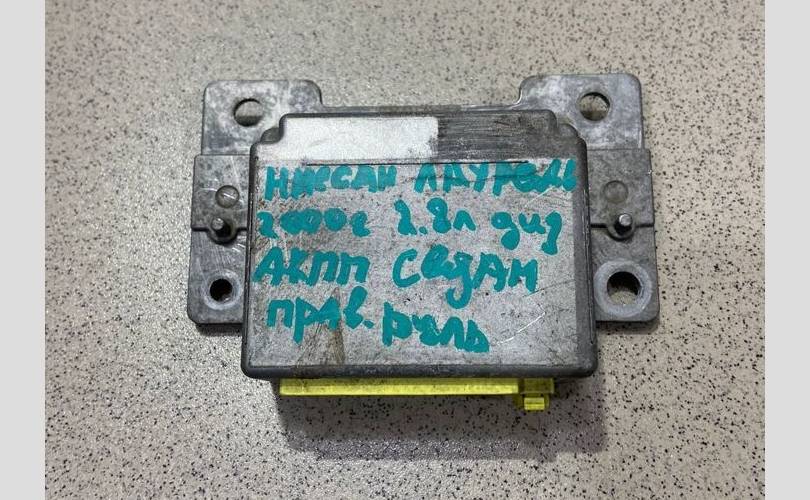 НИССАН ЛАУРЕЛЬ
2000г 2.8л диз
АКПП СЕДАН
прав. руль